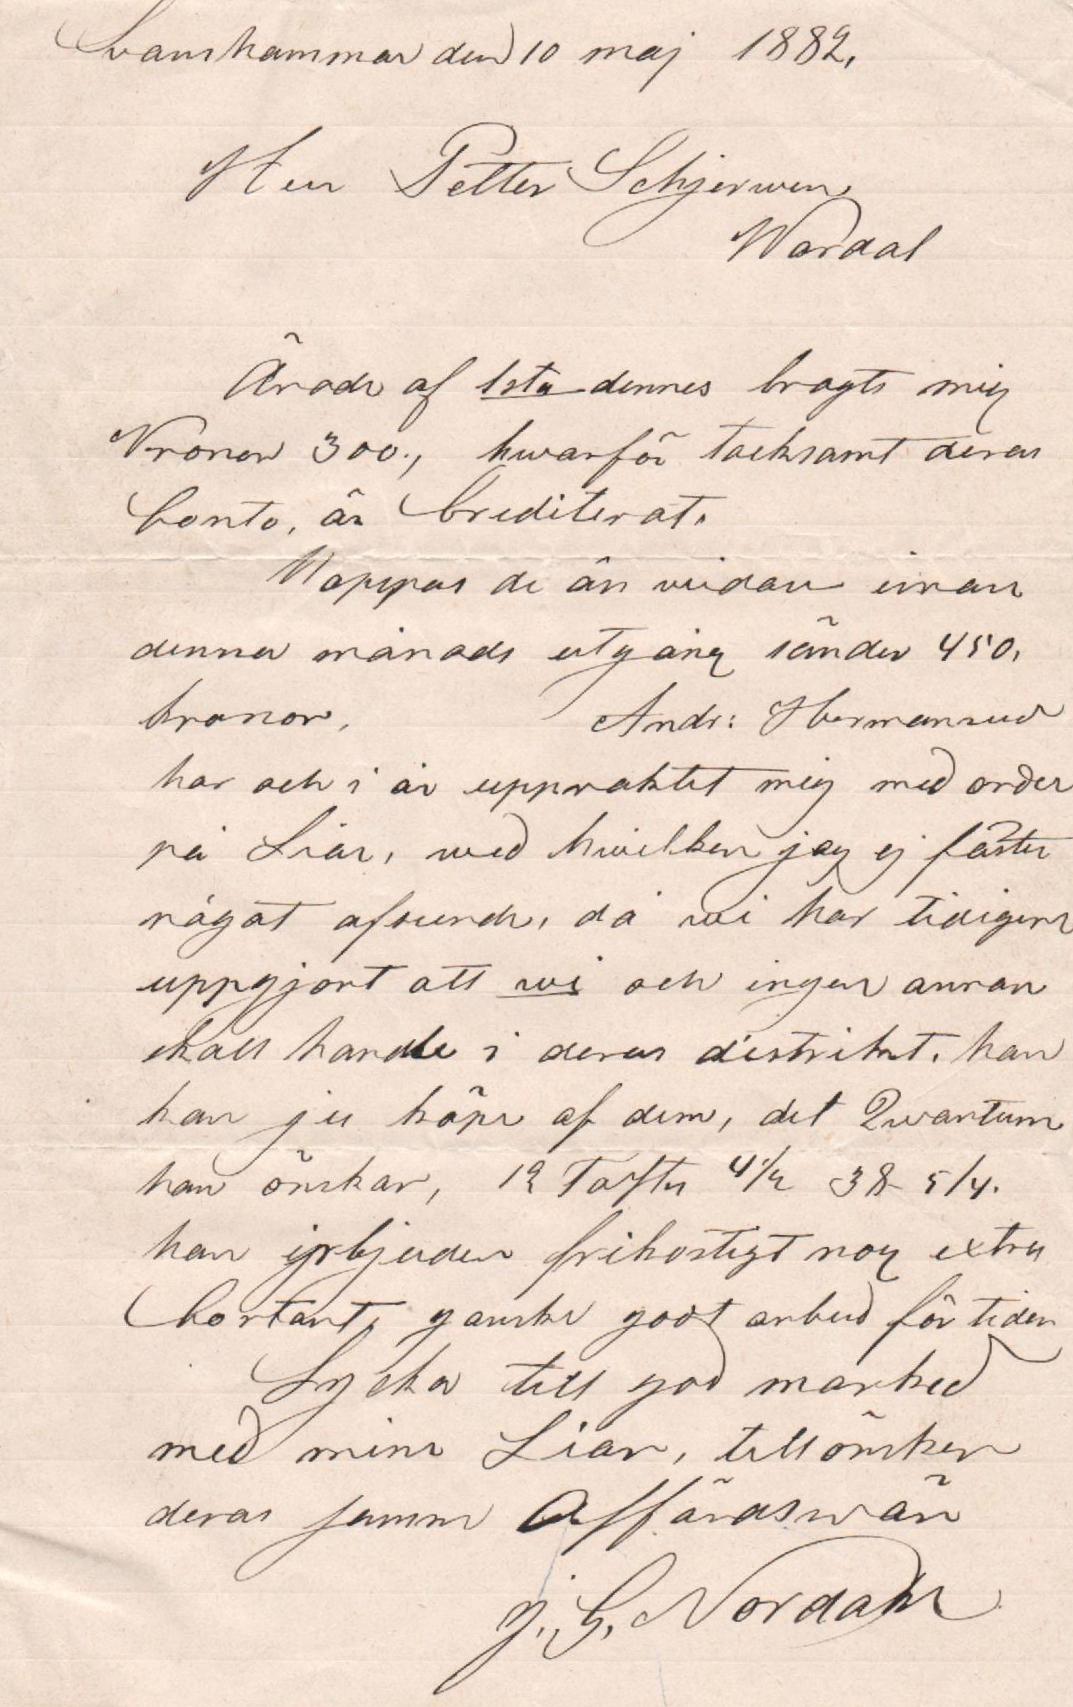 Svanshammar den 10 maj 1882.
Herr Petter Schjerwen
Wardal
Ärade af 1sta dennes bragte mig
Kronor 300., hwarför tacksamt deras
Conto, är Crediterat.
Hoppas de än vidare innan
denna månads utgång sänder 450.
kronor. Andr: Hermanrud
har och i år uppvaktet mig med order
på Liar, wed hwilken jag ej fäster
något afseende, då wi har tidigere
uppgjort att wi och ingen annan
skall handle i deras distrikt. han
kan ju köpe af dem, det Qwantum
han önskar, 12 Tolfter 4 1/2 38 5/4.
han frikostigt nog extra
Contant, ganske godt anbud för tiden
Lycka till god marked
med mine Liar, tillönsker
deras Affärdswän
J. G. Nordahl